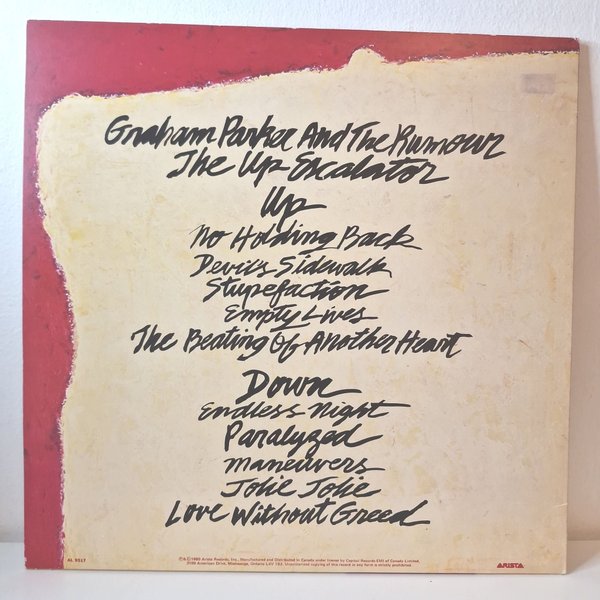 Graham Parker And The Rumour
The Up Escalator
Up
No Holding Back
Devil's Sidewalk
Stupefaction
Empty Lives
The Beating Of Another Heart
Down
Endless Night
Paralyzed
Maneuvers
Jolie Jolie
Love Without Greed
AL 9517
℗&©1980 Arista Records, Inc., Manufactured and Distributed in Canada under license by Capitol Records-EMI of Canada Limited,
3109 American Drive, Mississauga, Ontario L4V 1B2. Unauthorized copying of this record in any form is strictly prohibited.
ARISTA